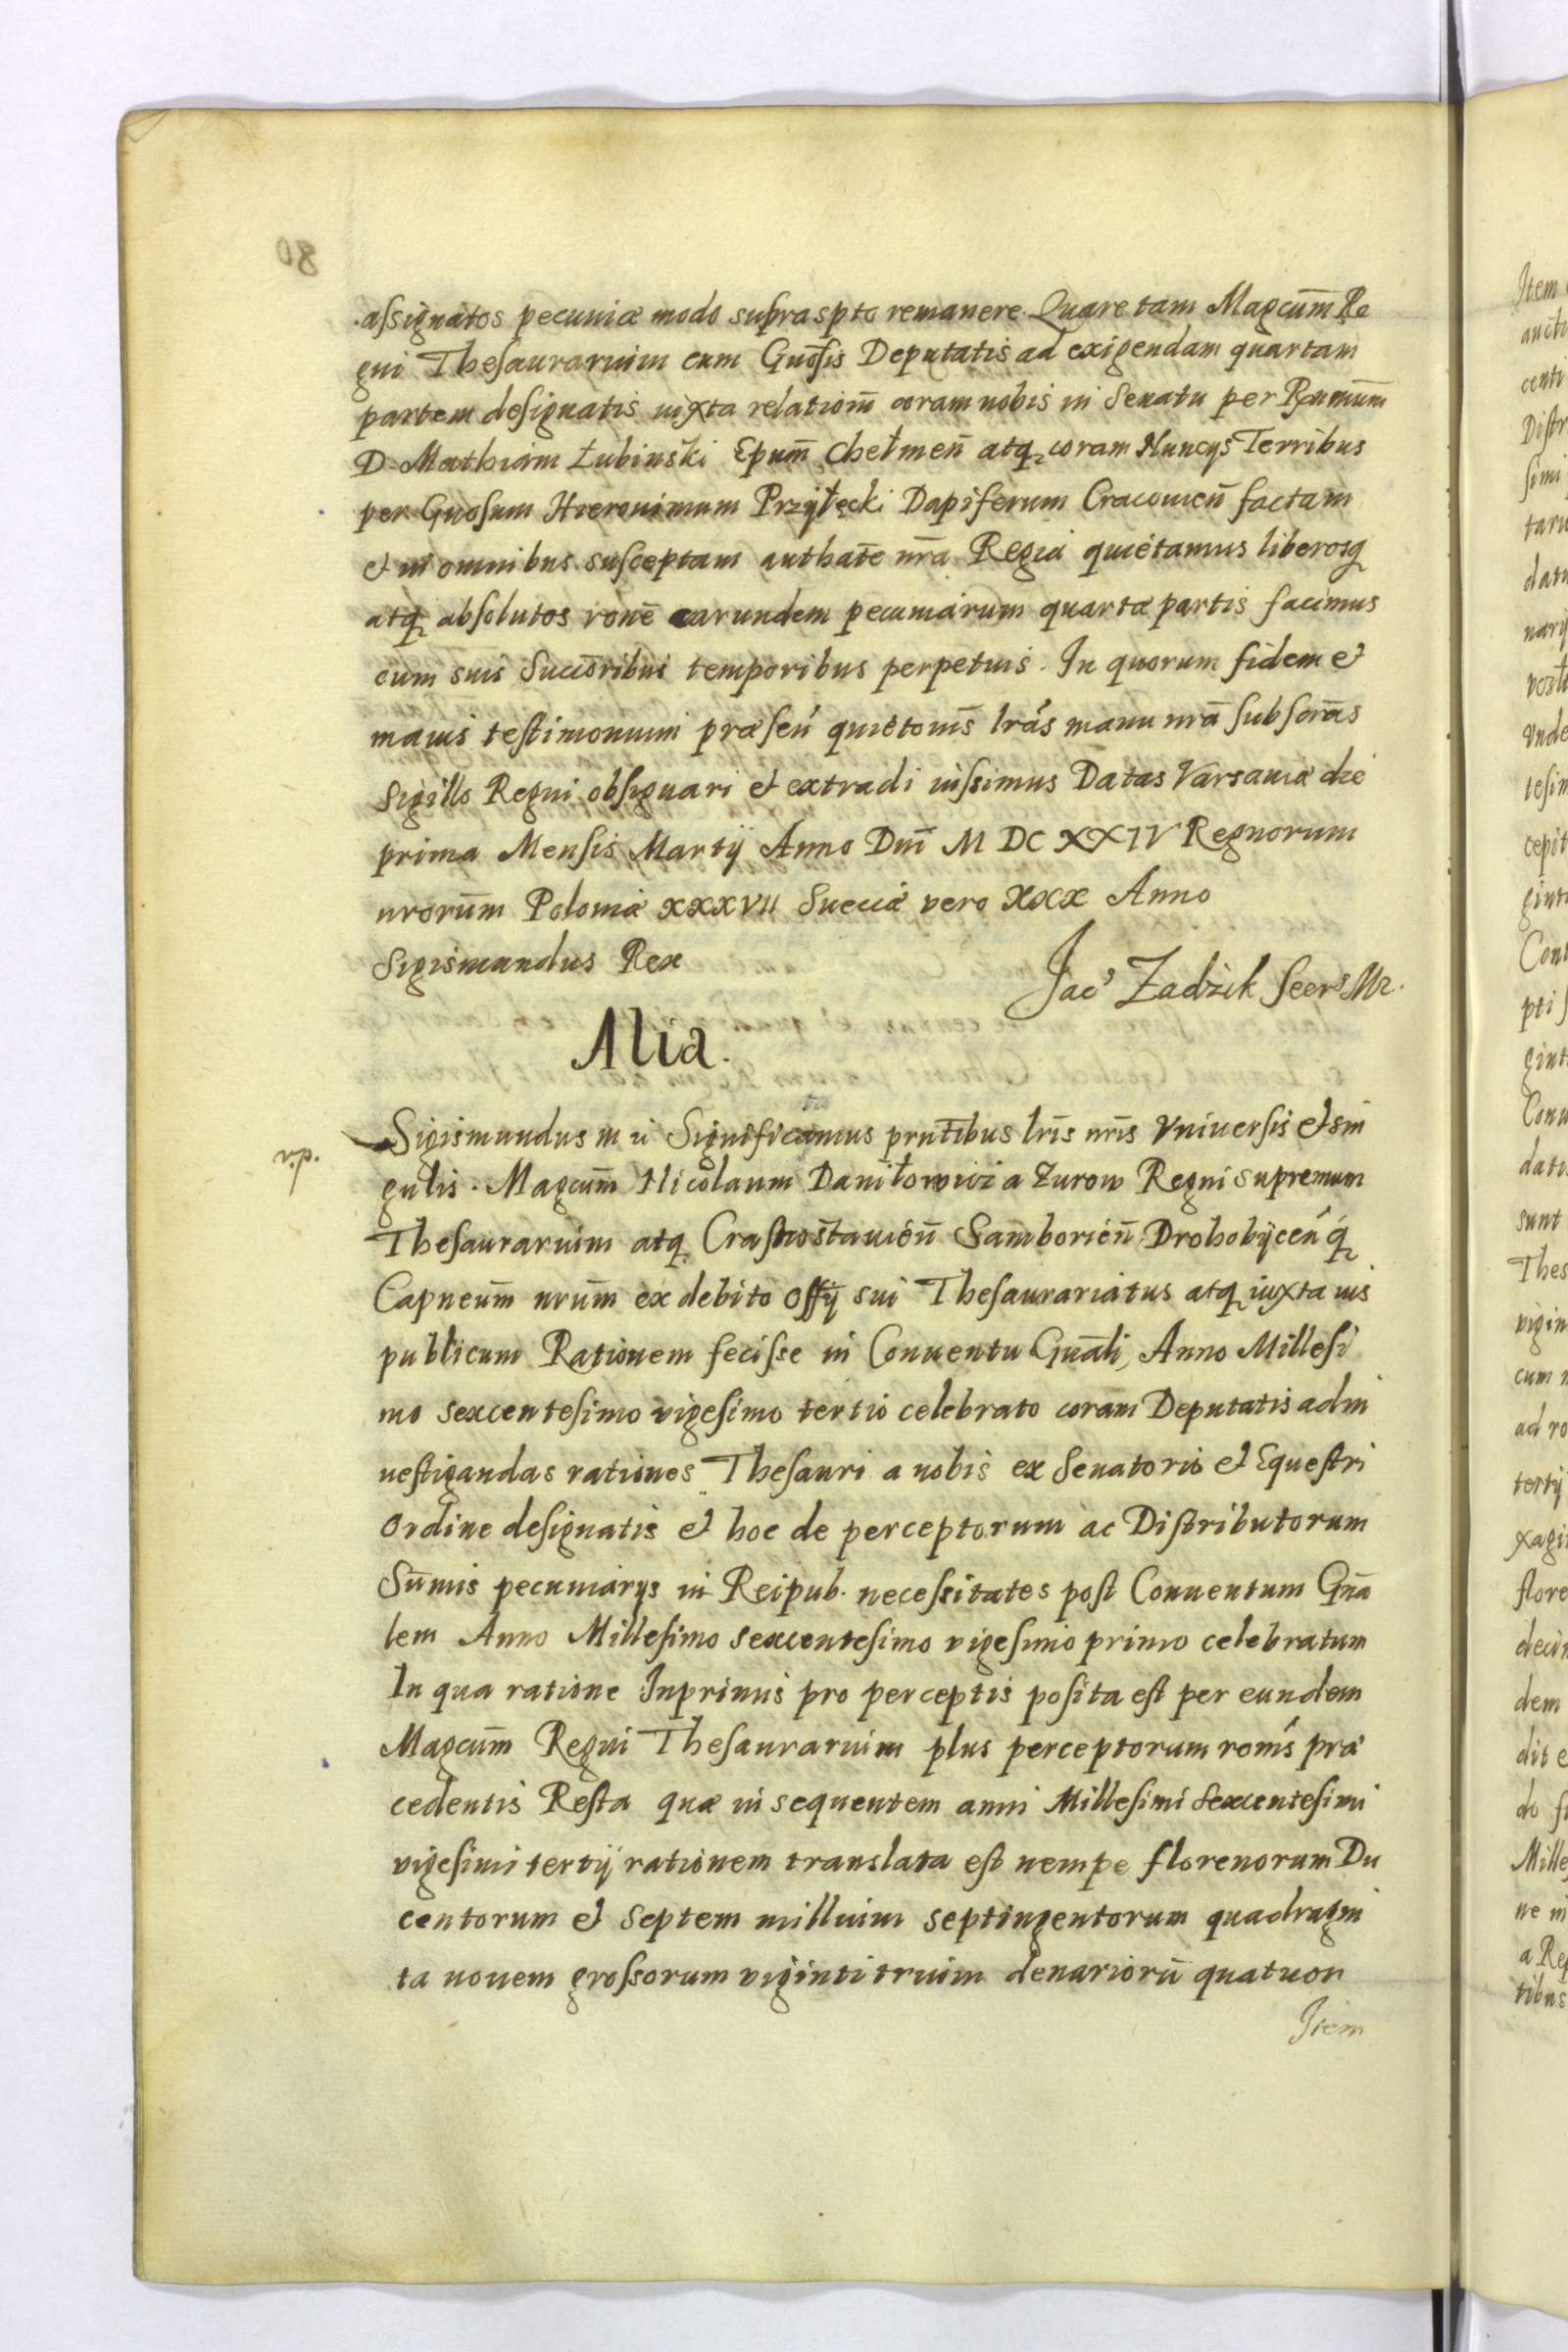 assignatos pecuniæ modo supraspto remanere. Quare tam Magcum̄ Re
gni Thesaurarium cum Gnōsis Deputatis ad exigendam quartam
partem designatis iuxta relationm̄ coram nobis in Senatu per Rndmum̄
D. Mathiam Łubinski Epum̄ Chełmen̄ atq coram Nuncijs Terribus
per Gnosum Hieronimum Przyłęcki Dapiferum Cracouien̄ factam
et in omnibus susceptam authatē nrā Regia quietamus liberosq
atq absolutos ronē earundem pecuniarum quartæ partis facimus
cum suis Succōribus temporibus perpetuis. In quorum fidem et
maius testimonium præsen̄ quietonis̄ lrās manu nrā subscrās
Sigillo Regni obsignari et extradi iussimus Datas Varsauiæ die
prima Mensis Martij Anno Dni̅ M DC XXIV Regnorum
nrorum̄ Poloniæ XXXVII Sueciæ vero XXX Anno
Sigismundus Rex
Jacs Zadzik Secrs Mr.
Alia.
v.p.
Sigismundus m u Significamus prntībus lrīs nrīs Vniuersis et sin
gulis. Magcum̄ Nicolaum Daniłowicz a Zurow Regni supremum
Thesaurarium atq Crasnostauien̄ Samborien̄ Drohobÿcen̄ q
Capneum̄ nrum̄ ex debito offÿ sui Thesaurariatus atq iuxta ius
publicum Rationem fecisse in Conuentu Gnāli, Anno Millesi
mo sexcentesimo vigesimo tertio celebrato coram Deputatis ad in
uestigandas rationes Thesauri a nobis ex Senatorio et Equestri
Ordine designatis et hoc de perceptorum ac Distributorum
Sum̄is pecuniarijs in Reipub. necessitates post Conuentum Gnā
lem Anno Millesimo sexcentesimo vigesimo primo celebratum
In qua ratione Inprimis pro perceptis posita est per eundem
Magcum̄ Regni Thesaurarium plus perceptorum ronis̄ præ
cedentis Resta quæ in sequentem anni Millesimi sexcentesimi
vigesimi tertij rationem translata est nempe florenorum Du
centorum et septem millium septingentorum quadragin
ta nouem grossorum viginti trium denariorū quatuor
Item